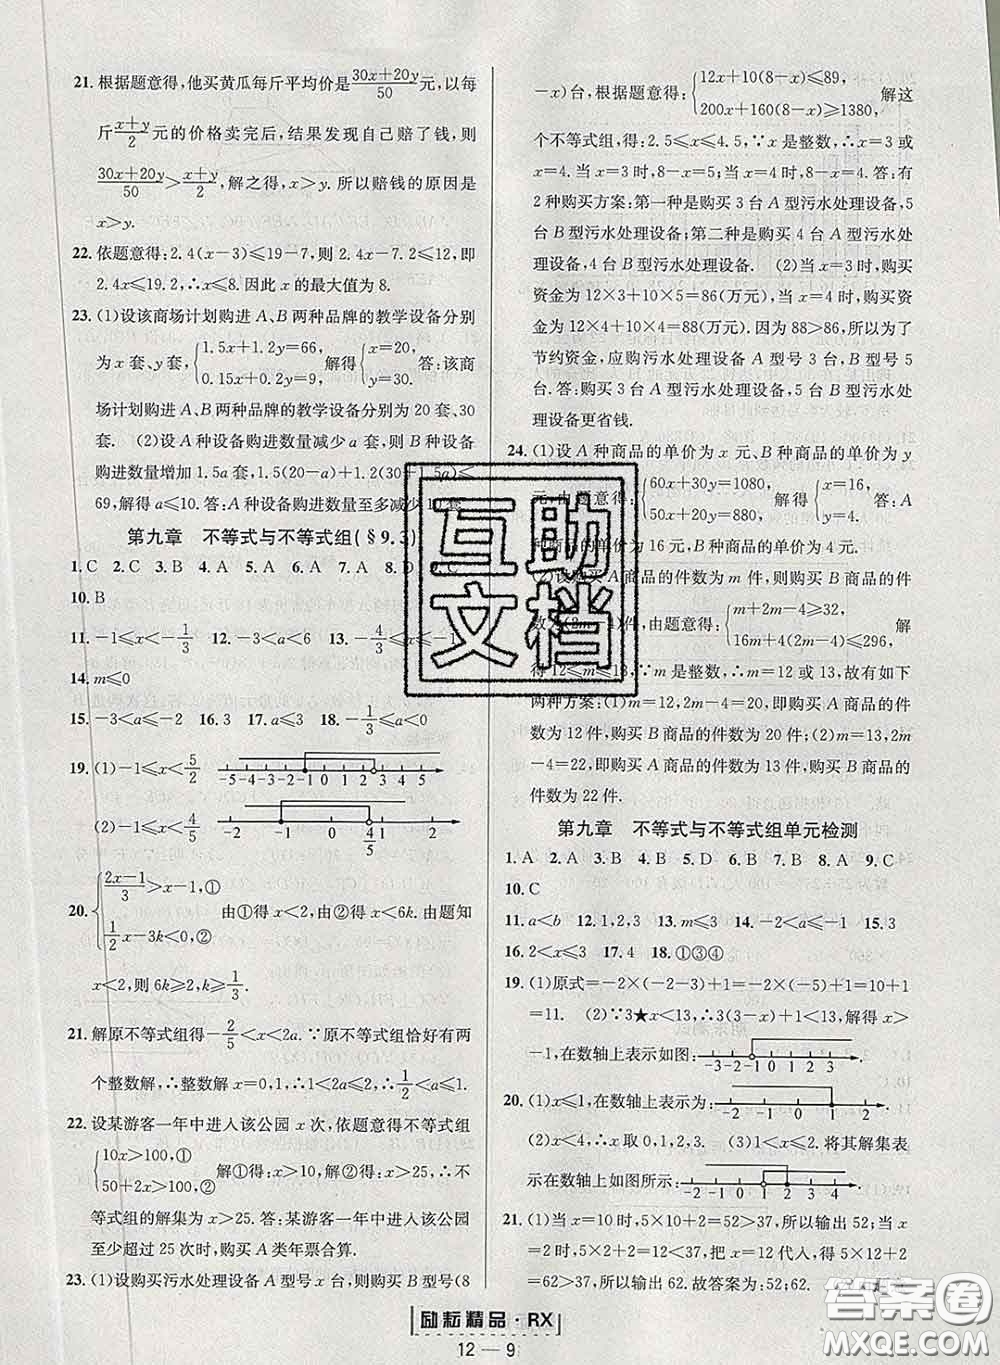 21. 根据题意得,他买黄瓜每斤平均价是(30x+20y)/50元,以每
斤(x+y)/2元的价格卖完后,结果发现自己赔了钱,则
(30x+20y)/50>(x+y)/2,解之得,x>y. 所以赔钱的原因是
x>y.
22. 依题意得:2.4(x-3)≤19-7,则 2.4x-7.2≤12,即
2.4x≤19.2,∴x≤8. 因此 x 的最大值为 8.
23. (1)设该商场计划购进 A、B 两种品牌的教学设备分别
为 x 套、y 套,{1.5x+1.2y=66, 0.15x+0.2y=9. 解得{x=20, y=30. 答:该商
场计划购进 A、B 两种品牌的教学设备分别为 20 套、30
套. (2)设 A 种设备购进数量减少 a 套,则 B 种设备
购进数量增加 1.5a 套,1.5(20-a)+1.2(30+1.5a)≤
69,解得 a≤10. 答:A 种设备购进数量至多减少 10 套
第九章 不等式与不等式组(§9.3)
1. C 2. C 3. B 4. A 5. A 6. A 7. A 8. D C
10. B
11. -1≤x<-1/3 12. -3<a<6 13. -4/3≤x≤-1
14. m≤0
15. -3<a≤-2 16. 3 17. a≤3 18. -1/2<a<0
19. (1)-1≤x<5/2 -5 -4 -3 -2 -1 0 1 2 3 4 5
(2)-1≤x<4/5 -2 -1 0 4/5 1 2
20. {(2x-1)/3>x-1,① 1/2x-3k<0,② 由①得 x<2,由②得 x<6k. 由题知
x<2,则 6k≥2,k≥1/3.
21. 解原不等式组得-2/5<x<2a. ∵原不等式组恰好有两
个整数解,∴整数解 x=0,1,∴1<2a≤2,∴1/2<a≤1.
22. 设某游客一年中进入该公园 x 次,依题意得不等式组
{10x>100,① 50+2x>100,② 解①得:x>10,解②得:x>25,∴不
等式组的解集为 x>25. 答:某游客一年中进入该公园
至少超过 25 次时,购买 A 类年票合算.
23. (1)设购买污水处理设备 A 型号 x 台,则购买 B 型号(8
-x)台,根据题意得:{12x+10(8-x)≤89, 200x+160(8-x)≥1380, 解这
个不等式组,得:2.5≤x≤4.5,∵x 是整数,∴x=3 或
x=4. 当 x=3 时,8-x=5;当 x=4 时,8-x=4. 答:有
2 种购买方案:第一种是购买 3 台 A 型污水处理设备,5
台 B 型污水处理设备;第二种是购买 4 台 A 型污水处
理设备,4 台 B 型污水处理设备. (2)当 x=3 时,购买
资金为 12×3+10×5=86(万元),当 x=4 时,购买资
金为 12×4+10×4=88(万元). 因为 88>86,所以为了
节约资金,应购污水处理设备 A 型号 3 台,B 型号 5
台. 答:购买 3 台 A 型污水处理设备,5 台 B 型污水处
理设备更省钱.
24. (1)设 A 种商品的单价为 x 元、B 种商品的单价为 y
元,由题意得:{60x+30y=1080, 50x+20y=880. 解得{x=16, y=4. 答:A
种商品的单价为 16 元、B 种商品的单价为 4 元.
(2)设购买 A 商品的件数为 m 件,则购买 B 商品的件
数为(2m-4)件,由题意得:{m+2m-4≥32, 16m+4(2m-4)≤296, 解
得 12≤m≤13,∵m 是整数,∴m=12 或 13,故有如下
两种方案:(1)m=12,2m-4=20,即购买 A 商品的件数
为 12 件,购买 B 商品的件数为 20 件;(2)m=13,2m
-4=22,即购买 A 商品的件数为 13 件,购买 B 商品的
件数为 22 件.
第九章 不等式与不等式组单元检测
1. A 2. A 3. B 4. B 5. D 6. B 7. B 8. A 9. C
10. C
11. a<b 12. 1,2,3 13. m≤3 14. -2<a≤-1 15. 3
16. 2<x≤3 17. 4 18. ①③④
19. (1)原式=-2×(-2-3)+1=-2×(-5)+1=10+1
=11. (2)∵3★x<13,∴3(3-x)+1<13,解得 x>
-1,在数轴上表示如图: -3 -2 -1 0 1 2 3 4 5.
20. (1)x≤1,在数轴上表示为: -3 -2 -1 0 1 2 3.
(2)x<4,∴x 取 0,1,2,3. (3)1<x≤2. 将其解集表
示在数轴上如图所示: -2 -1 0 1 2 3 4 5.
21. (1)当 x=10 时,5×10+2=52>37,所以输出 52;当
x=2 时,5×2+2=12<37,把 x=12 代入,得 5×12+2
=62>37,所以输出 62. 故答案为:52;62.
互助
文档
励耘精品·RX
12 — 9
答案圈
MXQE.COM